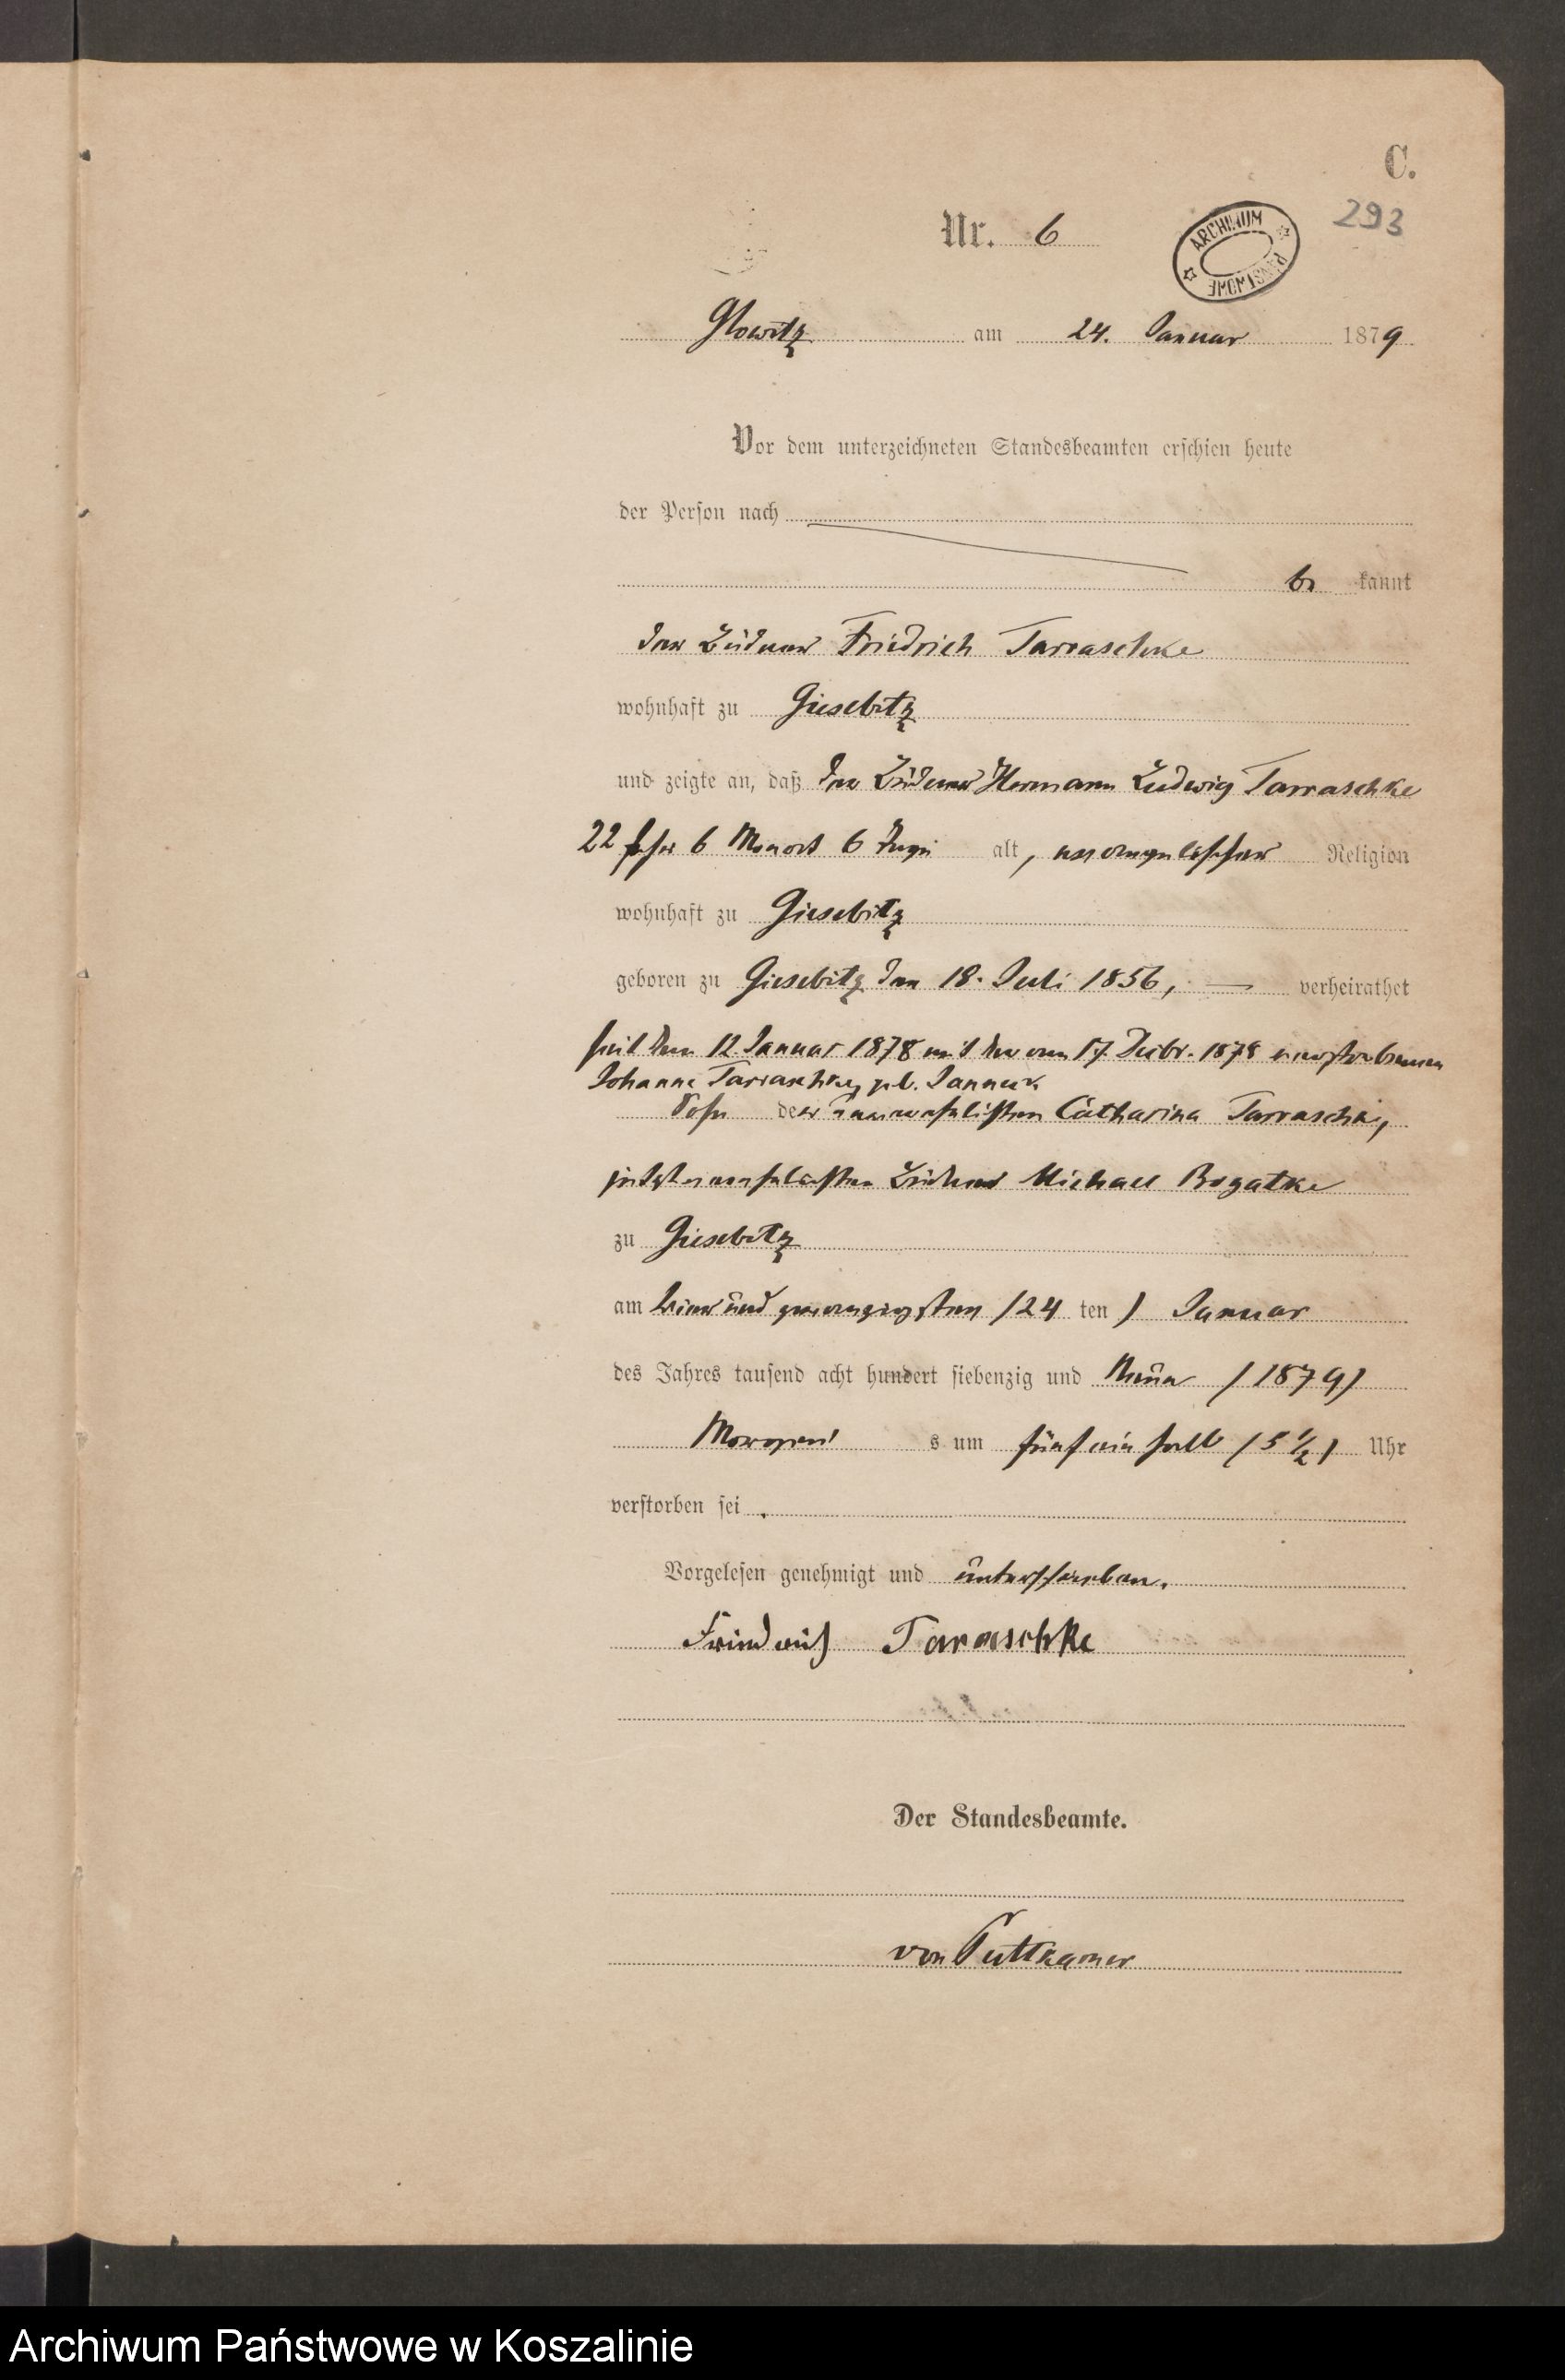 C.
293
Nr. 6
ARCHIWUM PAŃSTWOWE
Glowitz am 24. Januar 1879
Vor dem unterzeichneten Standesbeamten erschien heute
der Person nach
be kannt
der Büdner Friedrich Tarraschke
wohnhaft zu Giesebitz
und zeigte an, daß der Büdner Hermann Ludwig Tarraschke
22 Jahr 6 Monat 6 Tage alt, evangelischer Religion
wohnhaft zu Giesebitz
geboren zu Giesebitz den 18. Juli 1856, — verheirathet
seit dem 12. Januar 1878 mit der am 17. Dezbr. 1878 verstorbenen
Johanna Tarraschke, geb. Janneck
Sohn der unverehelichten Catharina Tarraschke,
jetzt verehelichten Büdner Michael Bogatke
zu Giesebitz
am vier und zwanzigsten (24 ten) Januar
des Jahres tausend acht hundert siebenzig und Neun (1879)
Morgen s um fünf ein halb (5 1/2) Uhr
verstorben sei.
Vorgelesen genehmigt und unterschrieben.
Friedrich Taraschke
Der Standesbeamte.
von Puttkamer
Archiwum Państwowe w Koszalinie